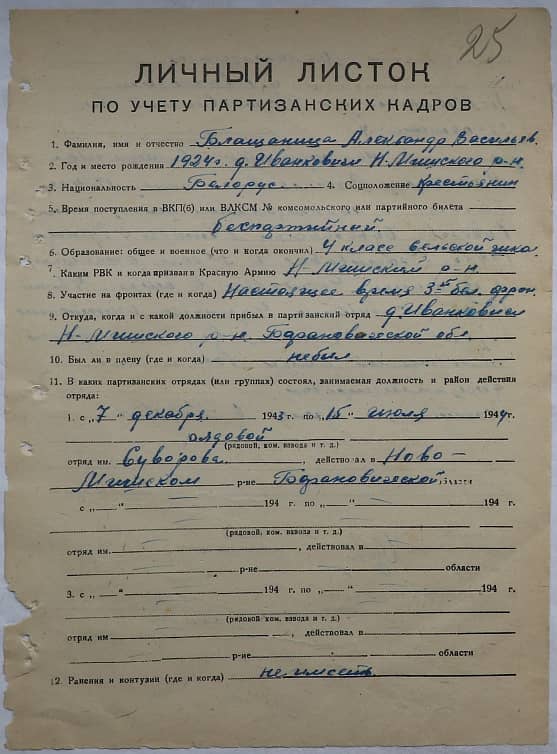 25
ЛИЧНЫЙ ЛИСТОК
ПО УЧЕТУ ПАРТИЗАНСКИХ КАДРОВ
1. Фамилия, имя и отчество Блащаница Александр Васильев.
2. Год и место рождения 1924г. д. Иванковичи Н-Мышского р-н.
3. Национальность Белорус 4. Соцположение Крестьянин
5. Время поступления в ВКП(б) или ВЛКСМ № комсомольского или партийного билета
беспартийный.
6. Образование: общее и военное (что и когда окончил) 4 класс сельской шко.
7. Каким РВК и когда призван в Красную Армию Н-Мышский р-н.
8. Участие на фронтах (где и когда) Настоящее время 3-й бел. фрон.
9. Откуда, когда и с какой должности прибыл в партизанский отряд д. Иванковичи
Н-Мышского р-н. Барановической обл.
10. Был ли в плену (где и когда) небыл
11. В каких партизанских отрядах (или группах) состоял, занимаемая должность и район действия
отряда:
1. с „7“ декабря 1943 г. по „15“ июля 1944 г.
рядовой
(рядовой, ком. взвода и т. д.)
отряд им. Суворова, действовал в Ново-
Мышском р-не Барановической области
с „—“ 194 г. по „—“ 194 г.
(рядовой, ком. взвода и т. д.)
отряд им. , действовал в
р-не области
3. с „—“ 194 г. по „—“ 194 г.
(рядовой, ком. взвода и т. д.)
отряд им , действовал в
р-не области
12. Ранения и контузии (где и когда) не имеет